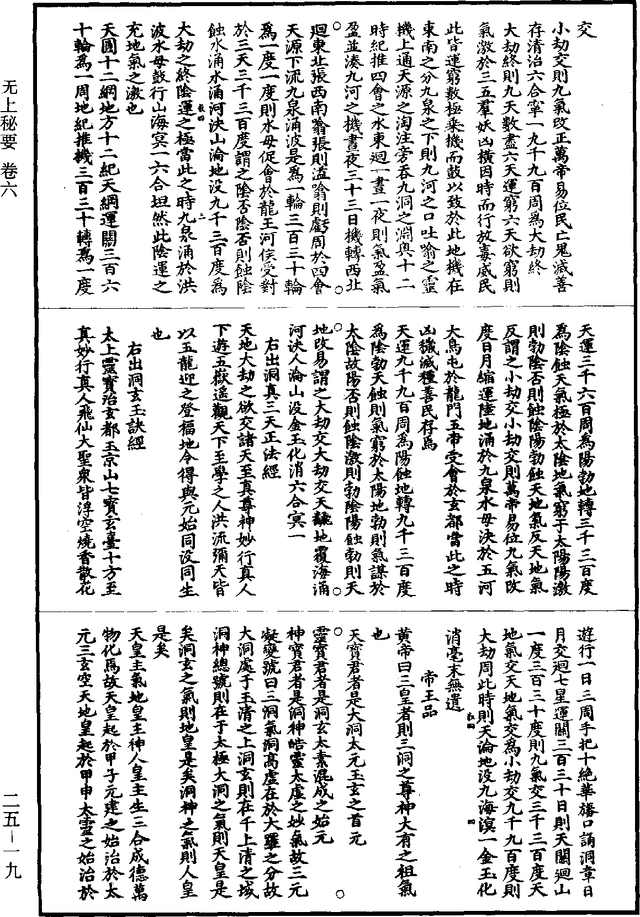 交
小劫交則九氣改正萬帝易位民亡鬼滅善
存清治六合寧一九千九百周為大劫終
大劫終則九天數盡六天運窮六天欲窮則
氣激於三五羣妖凶橫因時而行放毒威民
此皆運窮數極乘機而鼓以致於此地機在
東南之分九泉之下則九河之口吐喻之靈
機上通天源之淘注旁吞九洞之淵輿十二
時紀推四會之水東迴一晝一夜則氣盈氣
盈並湊九河之機晝夜三十三日機轉西北
迴東北張西南翕張則溢翕則虧周於四會
天源下流九泉涌波是為一輪三百三十輪
為一度一度則水母促會於龍王河侯受對
於三天三千三百度謂之陰否陰否則蝕陰
蝕水涌水涌河決山淪地没九千三百度為
大劫之終陰運之極當此之時九泉涌於洪
波水母鼓行山海冥一六合坦然此陰運之
充地氣之激也
天圓十二綱地方十二紀天綱運關三百六
十輪為一周地紀推機三百三十轉為一度
天運三千六百周為陽勃地轉三千三百度
為陰蝕天氣極於太陰地氣窮于太陽陽激
則勃陰否則蝕陰陽勃蝕天地氣反天地氣
反謂之小劫交小劫交則萬帝易位九氣改
度日月縮運陸地涌於九泉水母決於五河
大鳥屯於龍門五帝受會於玄都當此之時
凶穢滅種善民存焉
天運九千九百周為陽蝕地轉九千三百度
為陰勃天蝕則氣窮於太陽地勃則氣謀於
太陰故陽否則蝕陰激則勃陰陽蝕勃則天
地改易謂之大劫交大劫交天離地覆海涌
河決人淪山没金玉化消六合冥一
右出洞真三天正法經
天地大劫之欲交諸天至真尊神妙行真人
下遊五嶽遥觀天下至學之人洪流彌天皆
以五龍迎之登福地令得與元始同没同生
也
右出洞玄玉訣經
太上靈寶治玄都玉京山七寶玄臺十方至
真妙行真人飛仙大聖衆皆浮空燒香散花
遊行一日三周手把十絶華旛口誦洞章日
月交迴七星運關三百三十日則天關迴山
一度三百三十度則九氣交三千三百度天
地氣交天地氣交為小劫交九千九百度則
大劫周此時則天淪地没九海溟一金玉化
消毫末無遺
帝王品
黄帝曰三皇者則三洞之尊神大有之祖氣
也
天寶君者是大洞太元玉玄之首元
靈寶君者是洞玄太素混成之始元
神寶君者是洞神皓靈太虚之妙氣故三元
凝變號曰三洞氣洞高虚在於大羅之分故
大洞處于玉清之上洞玄則在于上清之域
洞神總號則在于太極大洞之氣則天皇是
矣洞玄之氣則地皇是矣洞神之氣則人皇
是矣
天皇主氣地皇主神人皇主生三合成德萬
物化焉故天皇起於甲子元建之始治於太
元三玄空天地皇起於甲申太靈之始治於
无上秘要 卷六
二五–一九